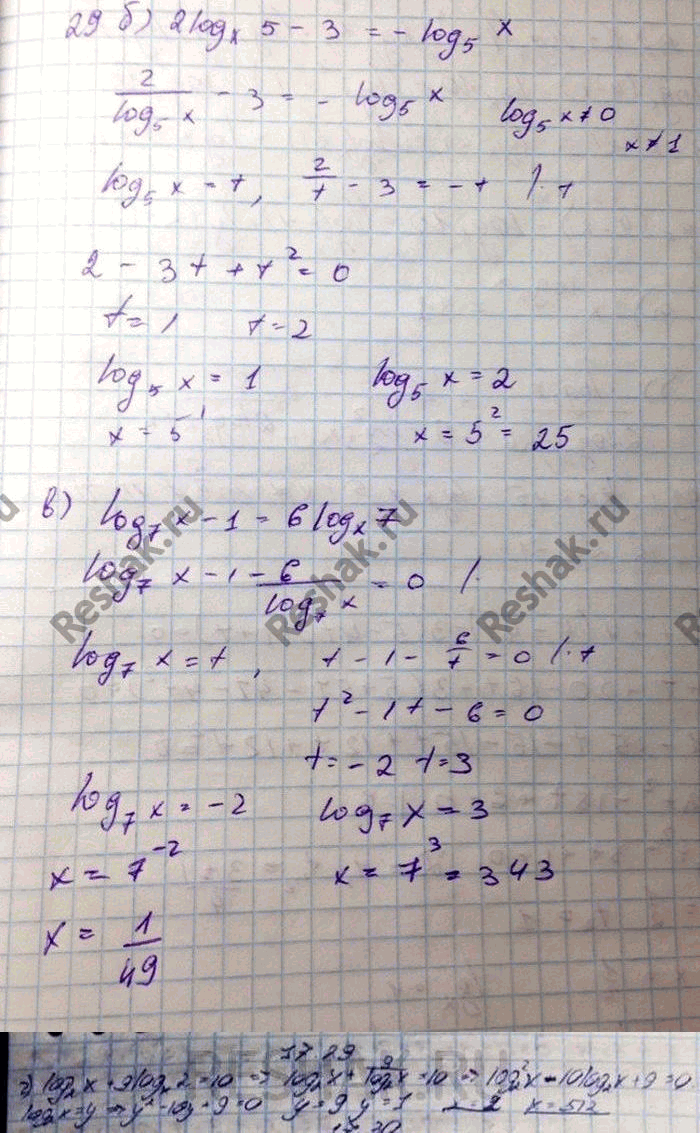 29 б) 2 log_x 5 - 3 = - log_5 x
2/log_5 x - 3 = - log_5 x   log_5 x ≠ 0
x ≠ 1
log_5 x = t, 2/t - 3 = -t /· t
2 - 3t + t² = 0
t = 1   t = 2
log_5 x = 1   log_5 x = 2
x = 5¹   x = 5² = 25
в) log_7 x - 1 = 6 log_x 7
log_7 x - 1 - 6/log_7 x = 0 /·
log_7 x = t, t - 1 - 6/t = 0 /· t
t² - 1t - 6 = 0
t = -2   t = 3
log_7 x = -2   log_7 x = 3
x = 7⁻²   x = 7³ = 343
x = 1/49
17.29
г) log_2 x + 9 log_x 2 = 10 => log_2 x + 9/log_2 x = 10 => log_2² x - 10 log_2 x + 9 = 0
log_2 x = y => y² - 10y + 9 = 0   y = 9   y = 1   x = 2   x = 512
17.30
Reshak.ru
Reshak.ru
Reshak.ru
RESHAK.RU